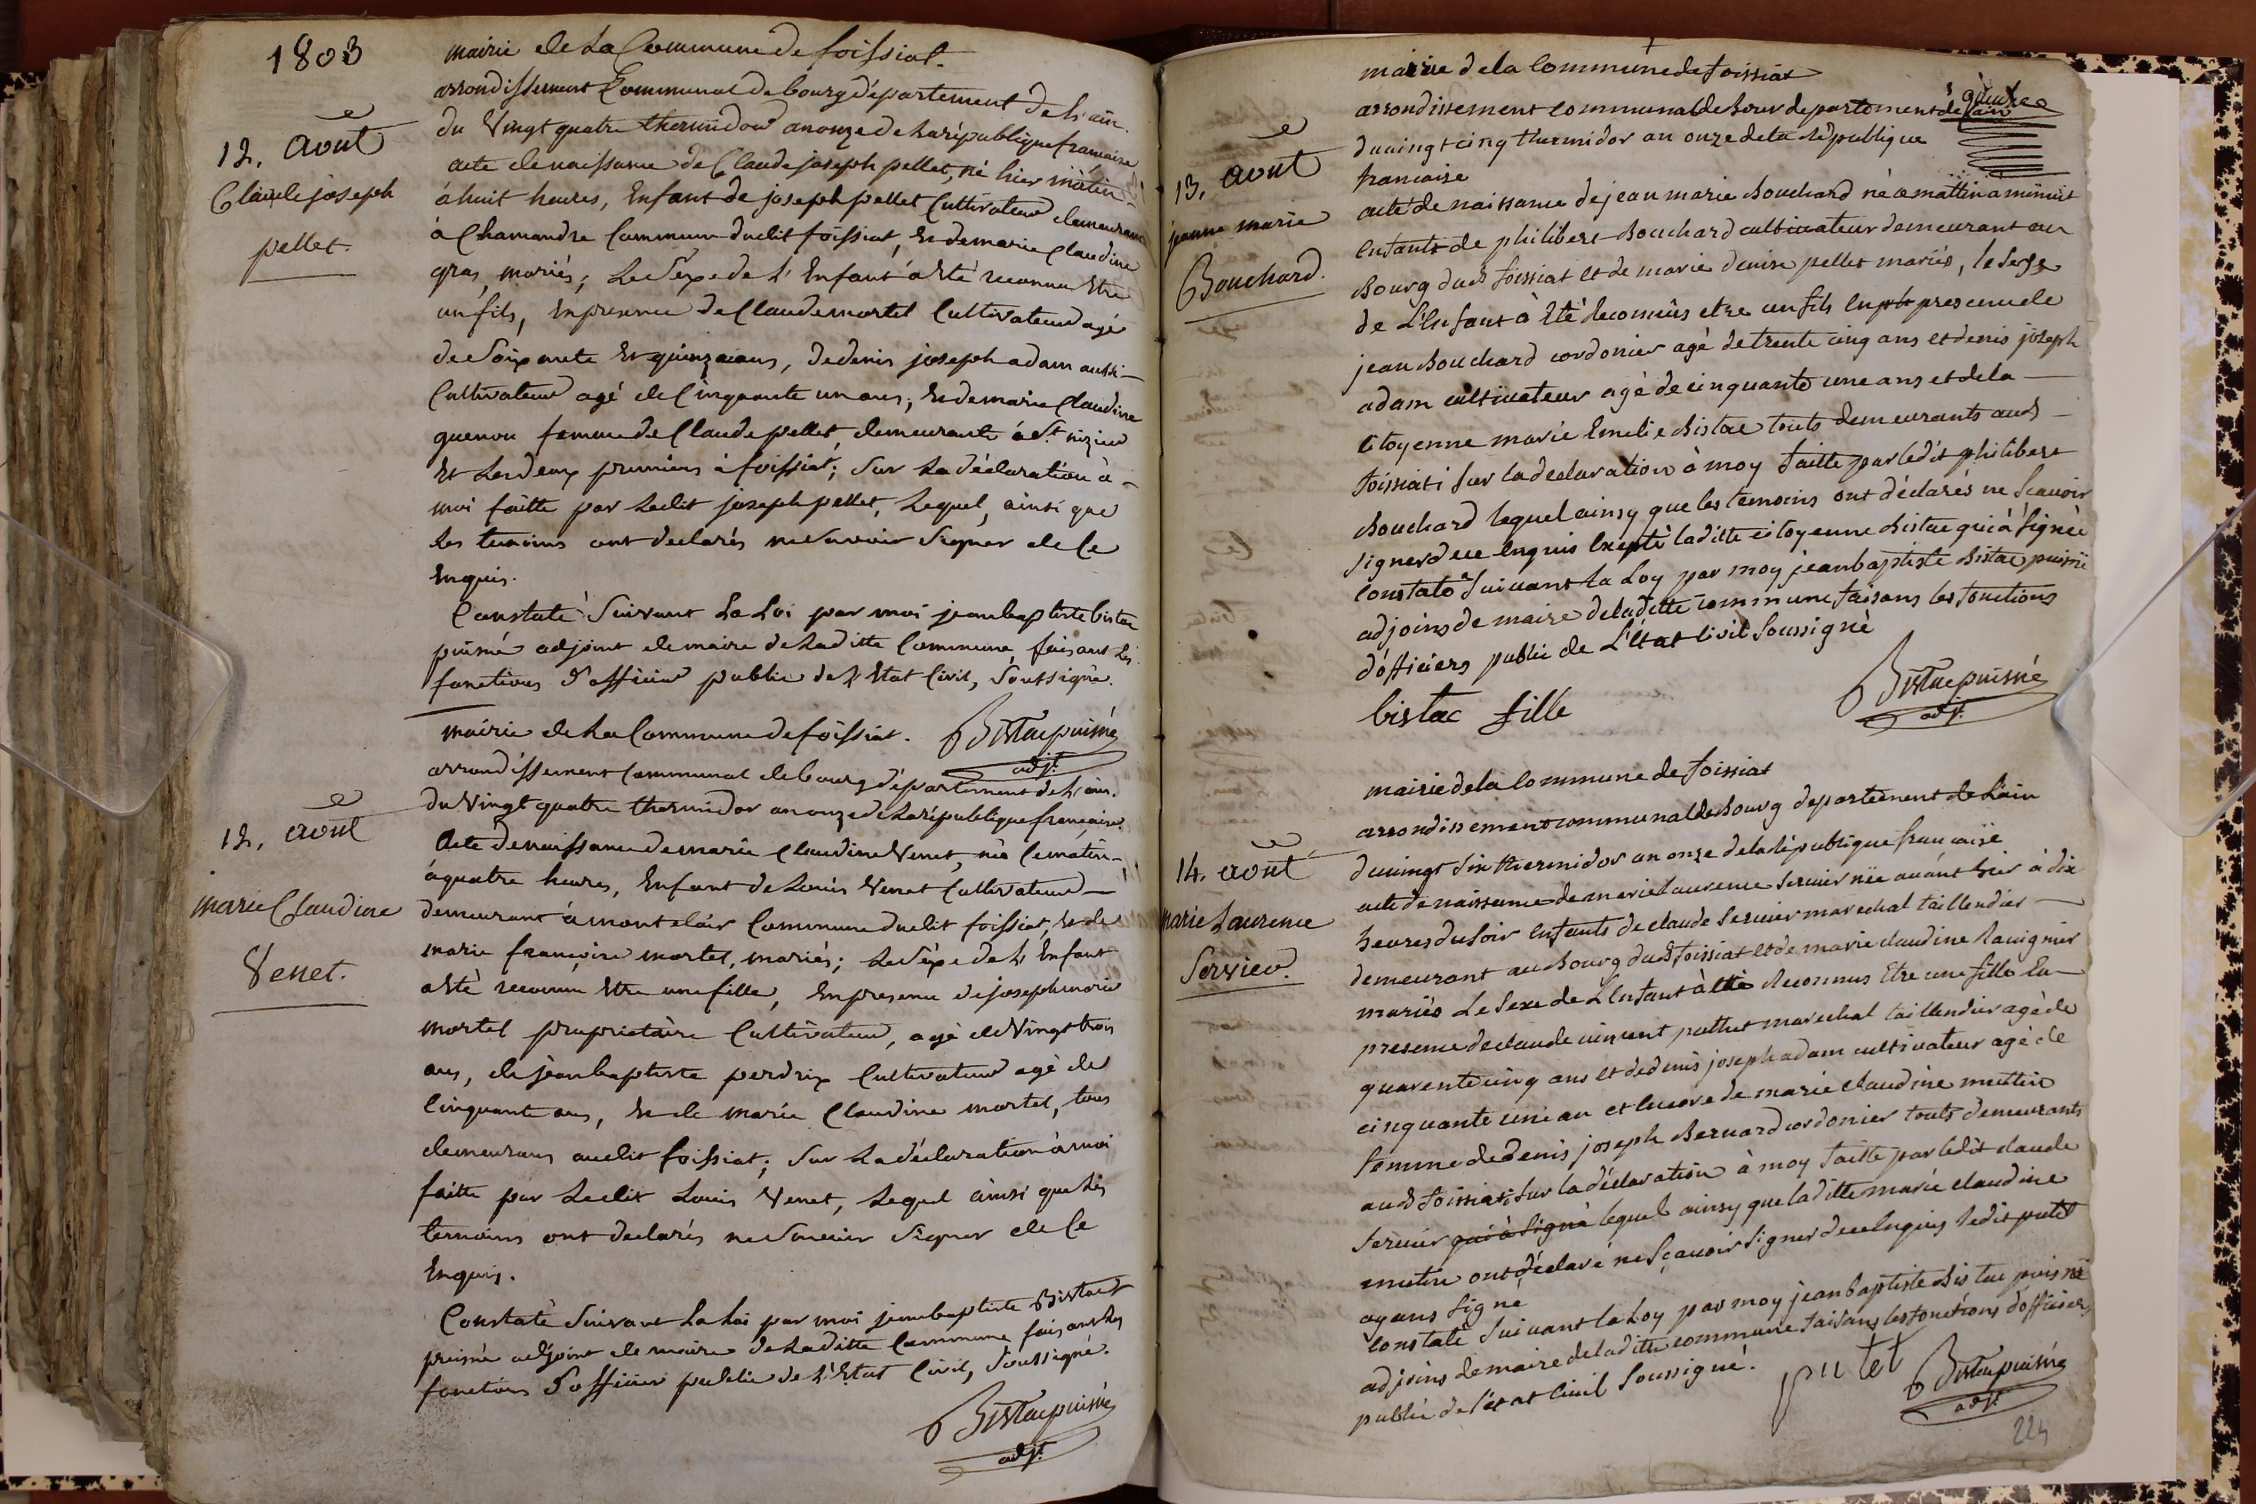 1803
mairie de La Commune de foissiat.
arrondissement Communal de bourg département de L'ain.
du Vingt quatre thermidor an onze de La république francaise
12. Aout
Claude joseph
pellet.
acte de naissance de Claude joseph pellet, né hier matin
à huit heures, Enfant de joseph pellet Cultivateur demeurant
à Chamandre Commune dudit foissiat, Et de marie Claudine
gras, mariés; Le Sexe de L'Enfant a Eté reconnu Etre
un fils, En presence de Claude mortel Cultivateur agé
de Soixante Et quinze ans, de denis joseph adam aussi
Cultivateur agé de Cinquante un ans, Et de marie Claudine
guenou femme de Claude pellet, demeurante à St. nizier
Et Les deux premiers à foissiat; Sur La déclaration à
moi faitte par Ledit joseph pellet, Lequel, ainsi que
les temoins ont declarés ne Savoir Signer de Ce
Enquis.
Constaté Suivant La Loi par moi jean baptiste bistac
puisné adjoint de maire de Laditte Commune, faisant Les
fonctions d'officier public de L'Etat Civil, Soussigné.
Bistac puisné
adjt.
mairie de La Commune de foissiat.
arrondissement Communal de bourg département de L'ain.
du Vingt quatre thermidor an onze de La république française
12. aout
marie Claudine
Venet.
Acte de naissance de marie Claudine Venet, née Ce matin
à quatre heures, Enfant de Louis Venet Cultivateur
demeurant à montclair Commune dudit foissiat, Et de
marie françoise mortel, mariés; Le Sexe de L'Enfant
a Eté reconnu Etre une fille, En presence de joseph marie
mortel propriétaire Cultivateur, agé de Vingt trois
ans, de jean baptiste perdrix Cultivateur agé de
Cinquante ans, Et de marie Claudine mortel, tous
demeurans audit foissiat; Sur La déclaration à moi
faitte par Ledit Louis Venet, Lequel ainsi que Les
temoins ont declarés ne Savoir Signer de Ce
Enquis.
Constaté Suivant La Loi par moi jean baptiste Bistac
puisné adjoint de maire de Laditte Commune faisant Les
fonctions d'officier public de L'Etat Civil, Soussigné.
Bistac puisné
adjt.
mairie de la Commune de foissiat
arrondissement communal de bour departement de l'ain
du vingt cinq thermidor an onze de la Republique
francaise
13. aout
jeanne marie
Bouchard.
acte de naissance de jean marie Bouchard né ce mattin a minuit
enfants de philibert Bouchard cultivateur demeurant au
Bourg dud foissiat et de marie denise pellet mariés, le Sexe
de L'Enfant à Eté Reconnüs etre un fils En presence de
jean Bouchard cordonier agé de trente cinq ans et denis joseph
adam cultivateur agé de cinquante une ans et de la
Citoyenne marie Emelie Bistac touts demeurants aud
foissiat; Sur la declaration à moy faitte par ledit philibert
Bouchard lequel ainsy que les temoins ont déclarés ne Scavoir
signer de ce Enquis Excepté laditte citoyenne Bistac qui à Signée
Constaté Suivant la Loy par moy jean baptiste Bistac puisné
adjoins de maire de laditte commune faisans les fonctions
d'officiers public de L'état Civil Soussigné
bistac fille
Bistac puisné
adjt.
mairie de la Commune de foissiat
arrondissement communal de Bourg departement de L'ain
du vingt Six thermidor an onze de la République française
14. aout
Marie Laurence
Servier.
acte de naissance de marie Laurence Servier née avant hier à dix
heures du Soir enfants de claude Servier marechal taillendier
demeurant au Bourg dud foissiat et de marie claudine Ravignier
mariés Le Sexe de L'Enfant à été Reconnus Etre une fille En
presence de claude vincent puthet marechal taillendier agé de
quarente cinq ans et de denis joseph adam cultivateur agé de
cinquante une an et Encore de marie claudine mutin
femme de denis joseph Bernard cordonier touts demeurants
aud foissiat; Sur la déclaration à moy faitte par ledit claude
Servier qui à Signé lequel ainsy que laditte marie claudine
mutin ont déclaré ne Sçavoir Signer de ce Enquis Ledit putet
ayans Signé
Constaté Suivant la Loy par moy jean baptiste Bistac puisné
adjoins de maire de laditte commune faisans les fonctions d'officiers
public de l'état Civil Soussigné.
putet
Bistac puisné
adjt.
224